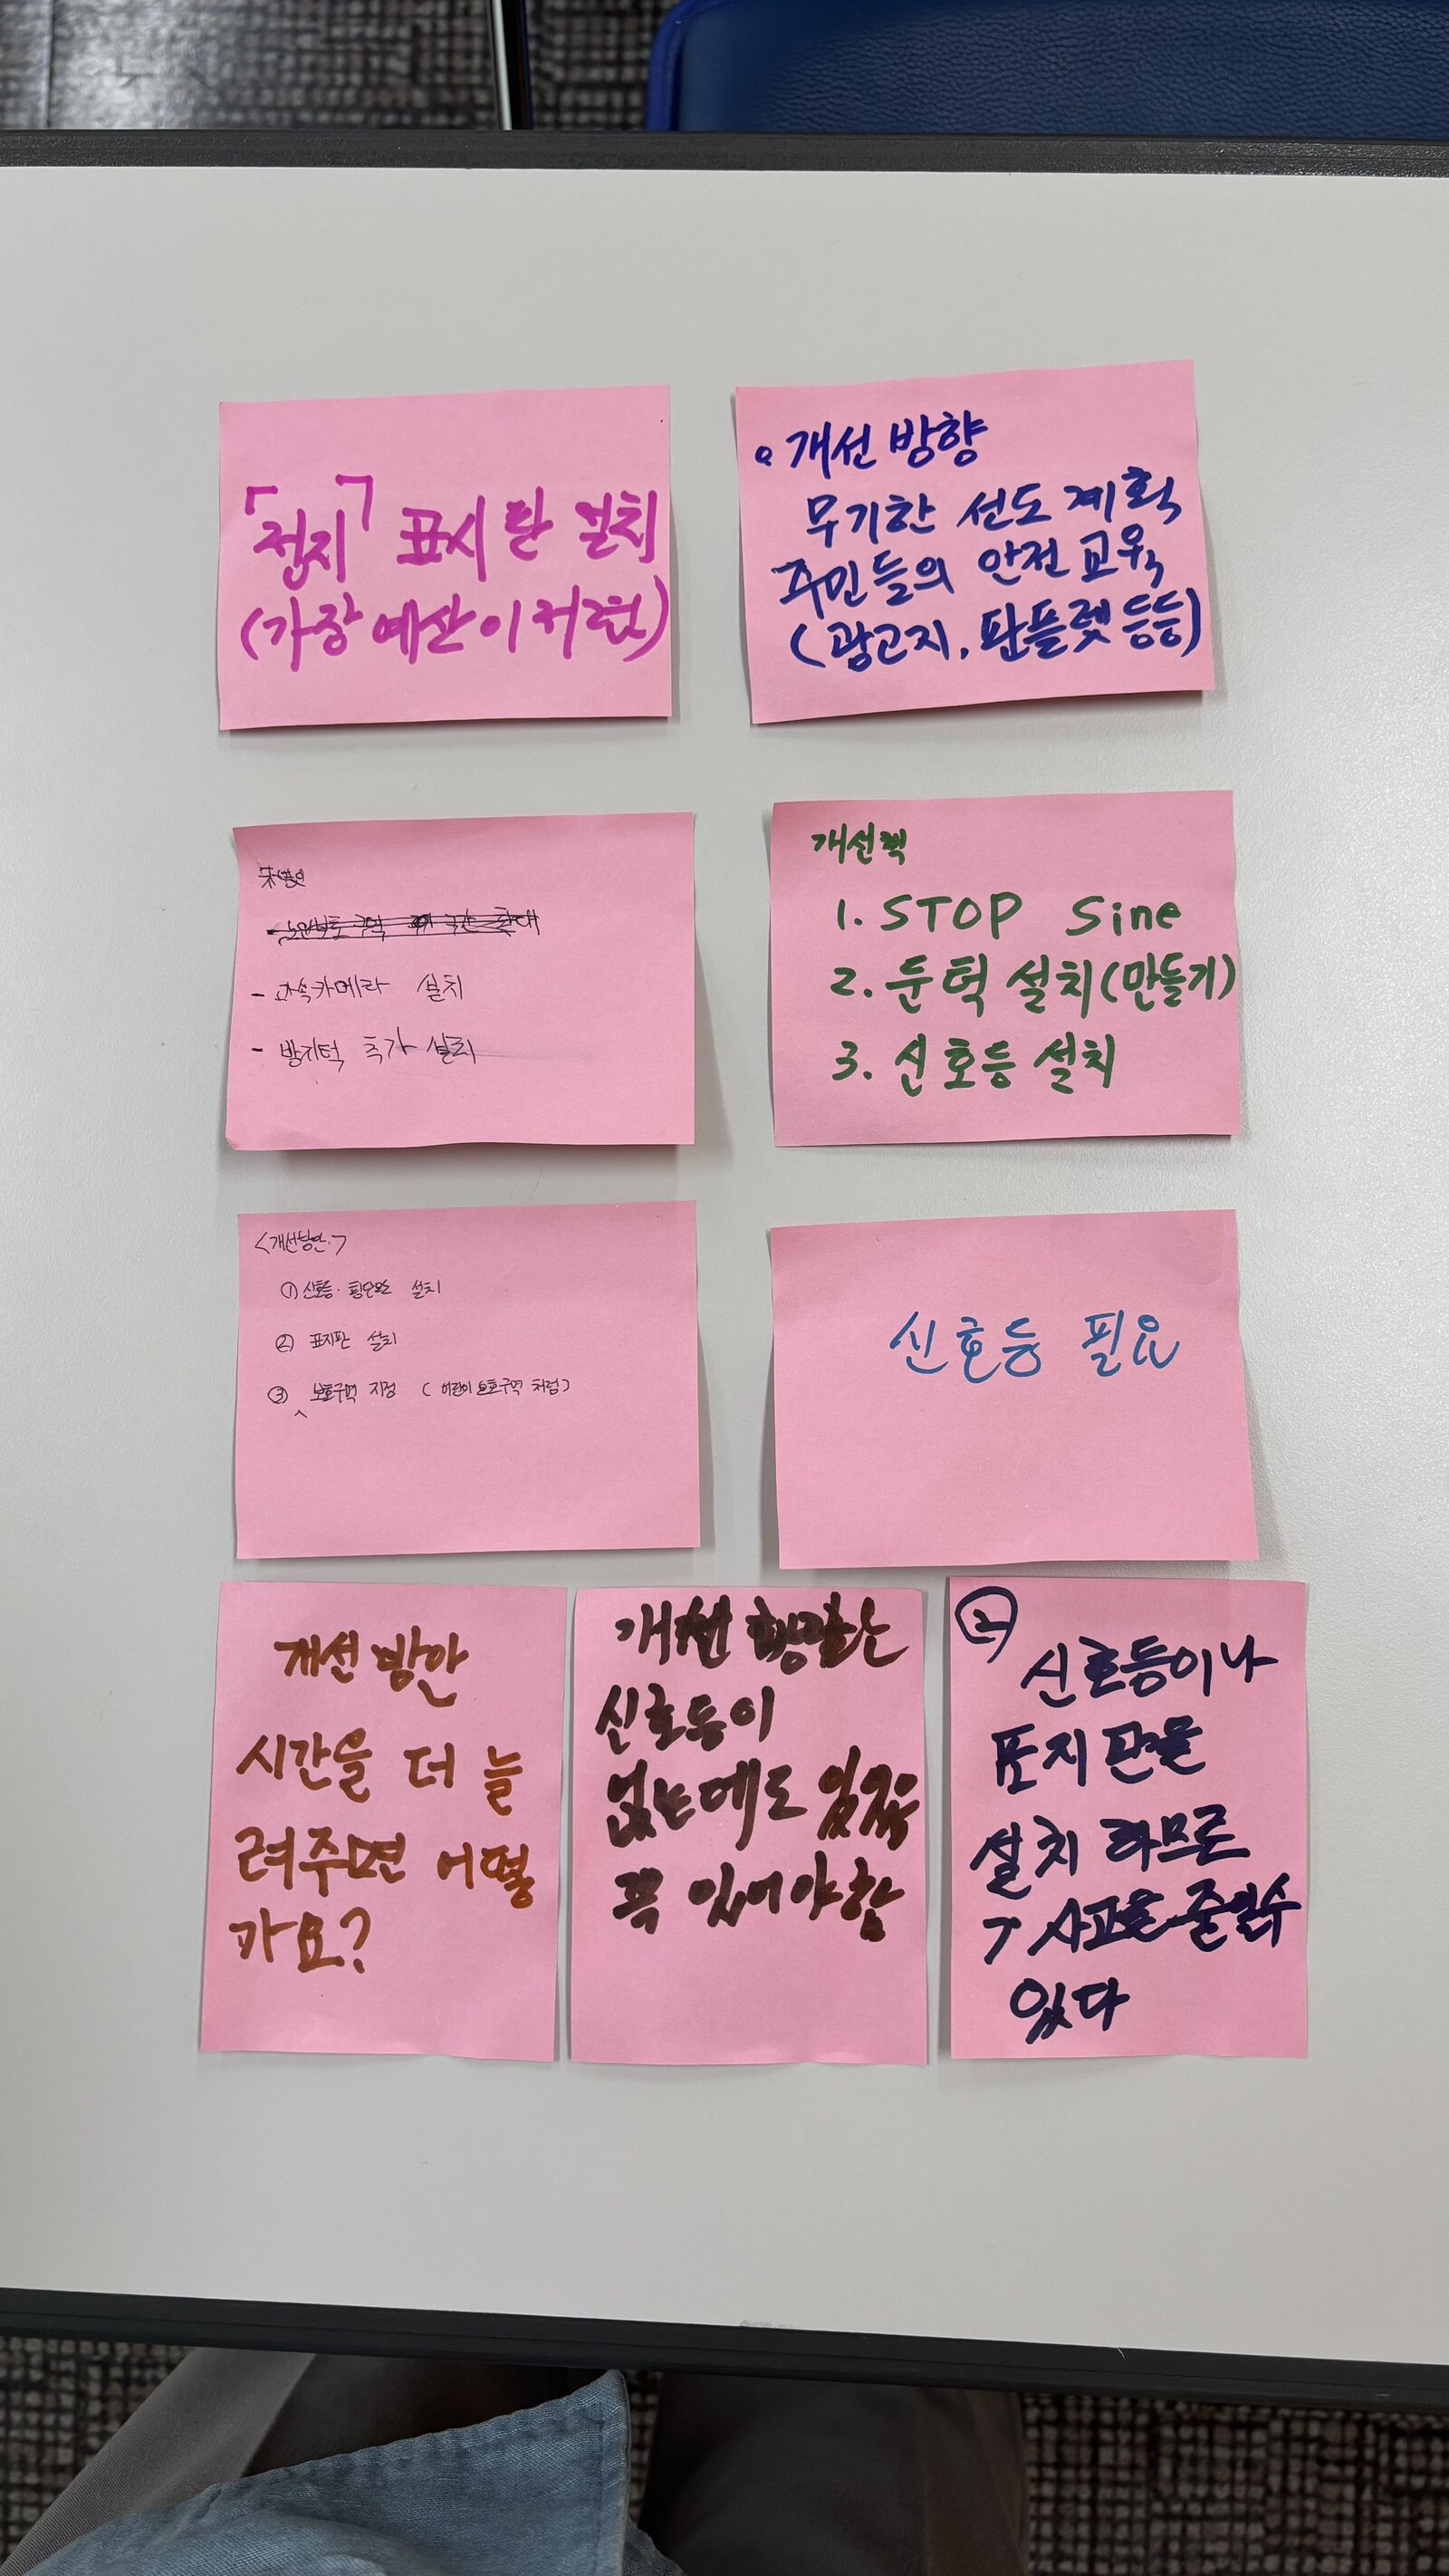 「정지」 표시판 설치
(가장 예산이 저렴)
개선 방향
무기한 선도 계획
주민들의 안전 교육
(광고지, 판플렛 등등)
- 과속카메라 설치
- 방지턱 추가 설치
개선책
1. STOP Sine
2. 둔턱 설치(만들기)
3. 신호등 설치
<개선방안>
① 신호등·횡단보도 설치
② 표지판 설치
③ 보호구역 지정 (어린이 보호구역 처럼)
신호등 필요
개선 방안
시간을 더 늘
려주면 어떨
까요?
개선
신호등이
없는데도
꼭 있어야함
②
신호등이나
표지판을
설치 하므로
사고를 줄일수
있다